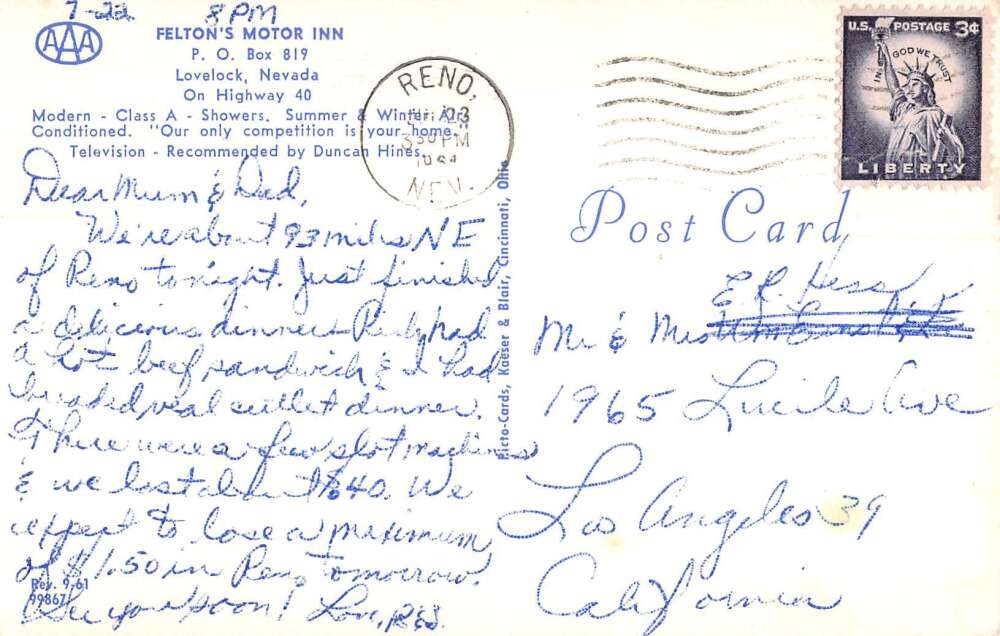 7-22 8 PM
AAA
FELTON'S MOTOR INN
P. O. Box 819
Lovelock, Nevada
On Highway 40
Modern - Class A - Showers. Summer & Winter Air
Conditioned. "Our only competition is your home."
Television - Recommended by Duncan Hines.
Dear Mum & Dad,
We're about 93 miles NE
of Reno tonight. Just finished
a delicious dinner. had
a hot beef sandwich & I had
breaded veal cutlet dinner.
There were a few slot machines
& we lost about 40. We
expect to lose a maximum
of $1.50 in Reno tomorrow.
See you soon! Love,
Rev. 9-61
99867
Picto-Cards, Kaeser & Blair, Cincinnati, Ohio
RENO,
23
330 PM
NEV.
U.S. POSTAGE 3¢
IN GOD WE TRUST
LIBERTY
Post Card
E. R. Hess
Mr & Mrs
1965 Lucile Ave
Los Angeles 39
California